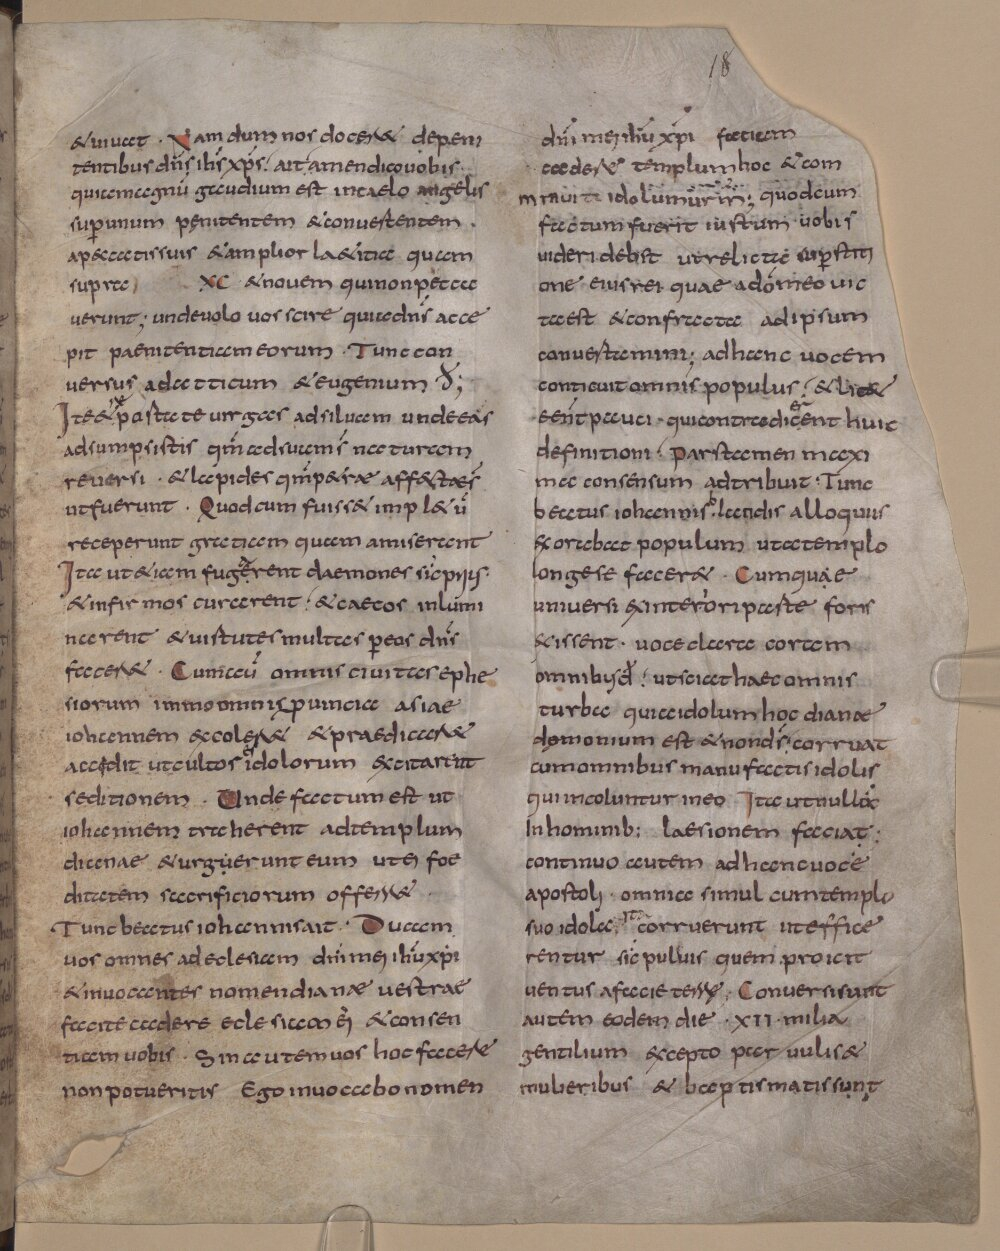 18
& uiuat · Nam dum nos doc& de peni
tentibus dns ihs xps. ait amen dico uobis ·
quia magnũ gaudium est in caelo angelis
super unum penitentem & conuertentem ·
a peccatis suis & amplior la&itia quam
supra XC & nouem qui non pecca
uerunt; unde uolo uos scire quia dns acce
pit paenitentiam eorum · Tunc con
uersus ad atticum & eugenium dx̄;
Ite & reportate uirgas ad siluam unde eas
adsumpsistis qm̄ ad suam s̄ naturam
reuersi · & lapides qm̄ p&rae affectae s̄
ut fuerunt · Quod cum fuiss& impl&ũ
receperunt gratiam quam amiserant
Ita ut &iam fugarent daemones sic prius ·
& infirmos curarent; & caecos inlumi
narent & uirtutes multas per eos dns
facer& · Cum aũ omnis ciuitas ephe
siorum immo omnis prouincia asiae
iohannem excoler& & praedicar&
accedit ut cultores idolorum excitarent
seditionem · Unde factum est ut
iohannem traherent ad templum
dianae & urguerunt eum ut ei foe
ditatem sacrificiorum offerr& ·
Tunc beatus iohannis ait · Ducam
uos omnes ad eclesiam dñi mei ihũ xpi
& inuocantes nomen dianae uestrae
facite cadere eclesiam ei & consen
tiam uobis · Sin autem uos hoc facere
non potueritis Ego inuocabo nomen
dñi mei ihũ xpi faciam
cadere templum hoc & com
minui te idolum urm̄; quod cum
factum fuerit iustum uobis
uideri deb&t ut relicta superstiti
one eius rei quae a dõ meo uic
ta est & confracta ad ipsum
conuertamini; ad hanc uocem
conticuit omnis populus; & lic&
eent pauci · qui contradicerent huic
definitioni · Pars tamen maxi
ma consensum adtribuit · Tunc
beatus iohannis blandis alloquiis
exortabat populum ut a templo
longe se facer& · Cumquae
uniuersi exteriori parte foris
exissent · uoce clara coram
omnibus d̄x̄; ut sciat haec omnis
turba quia idolum hoc dianae
domonium est & non ds̄ · corruat
cum omnibus manufactis idolis
qui incoluntur in eo Ita ut nullã
In hominib; laesionem faciat;
continuo autem ad hanc uoce
apostoli · omnia simul cum templo
suo idola ita corruerunt ut effice
rentur sic puluis quem proicit
uentus a facie terrę; Conuersi sunt
autem eodem die · XII · milia
gentilium excepto paruulis &
mulieribus & baptismati sunt